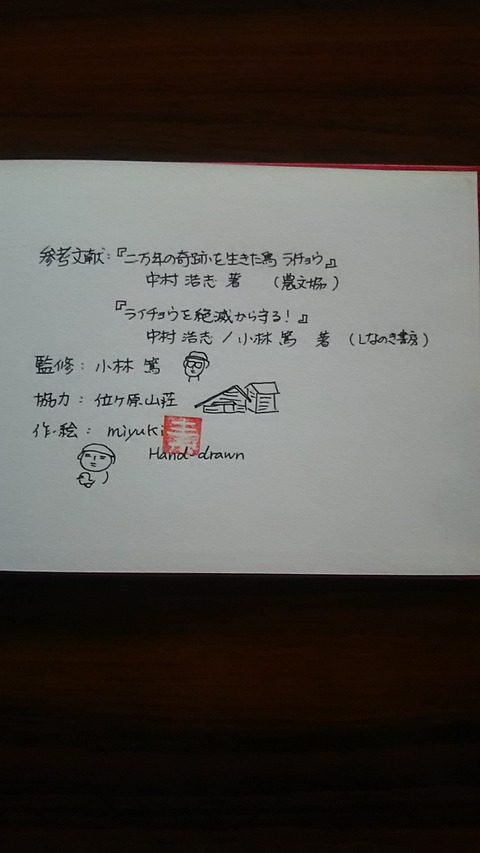 参考文献：『二万年の奇跡を生きた鳥 ライチョウ』
中村 浩志 著 （農文協）
『ライチョウを絶滅から守る！』
中村 浩志 / 小林 篤 著 （しなのき書房）
監修： 小林 篤
協力： 位ヶ原山荘
作・絵： miyuki
Hand-drawn